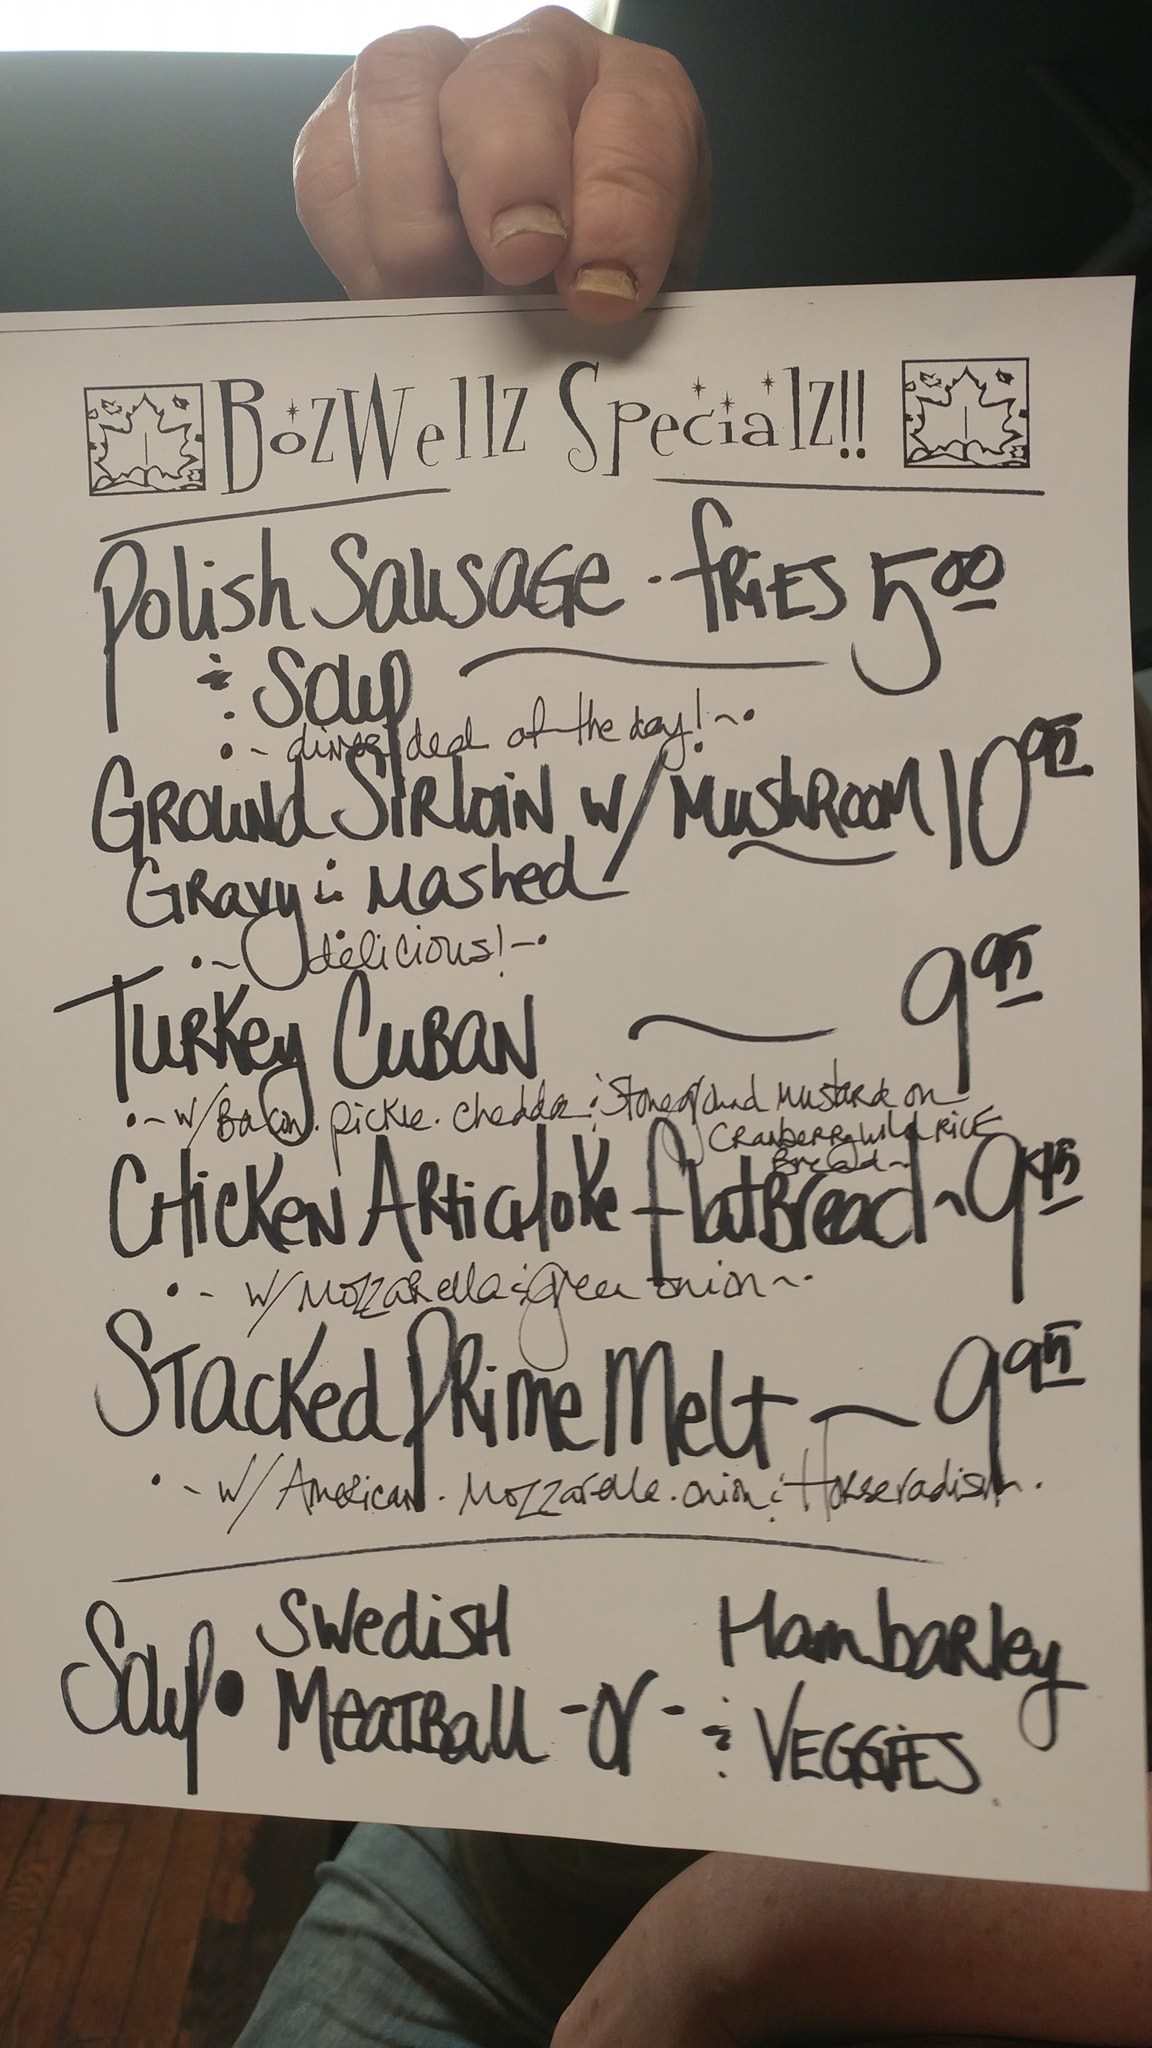 BozWellz Specialz!!
Polish Sausage - fries 5.00
& Soup
~ diner deal of the day! ~
Ground Sirloin w/ Mushroom 10.95
Gravy & Mashed
~ delicious! ~
Turkey Cuban 9.95
~ w/ Bacon. pickle. cheddar & Stoneground Mustard on
Cranberry wild Rice
Bread ~
Chicken Artichoke flatbread ~ 9.95
~ w/ Mozzarella & green onion ~
Stacked Prime Melt ~ 9.95
~ w/ American. Mozzarella. onion & Horseradish.
Soup • Swedish Meatball - or - Ham barley & Veggies